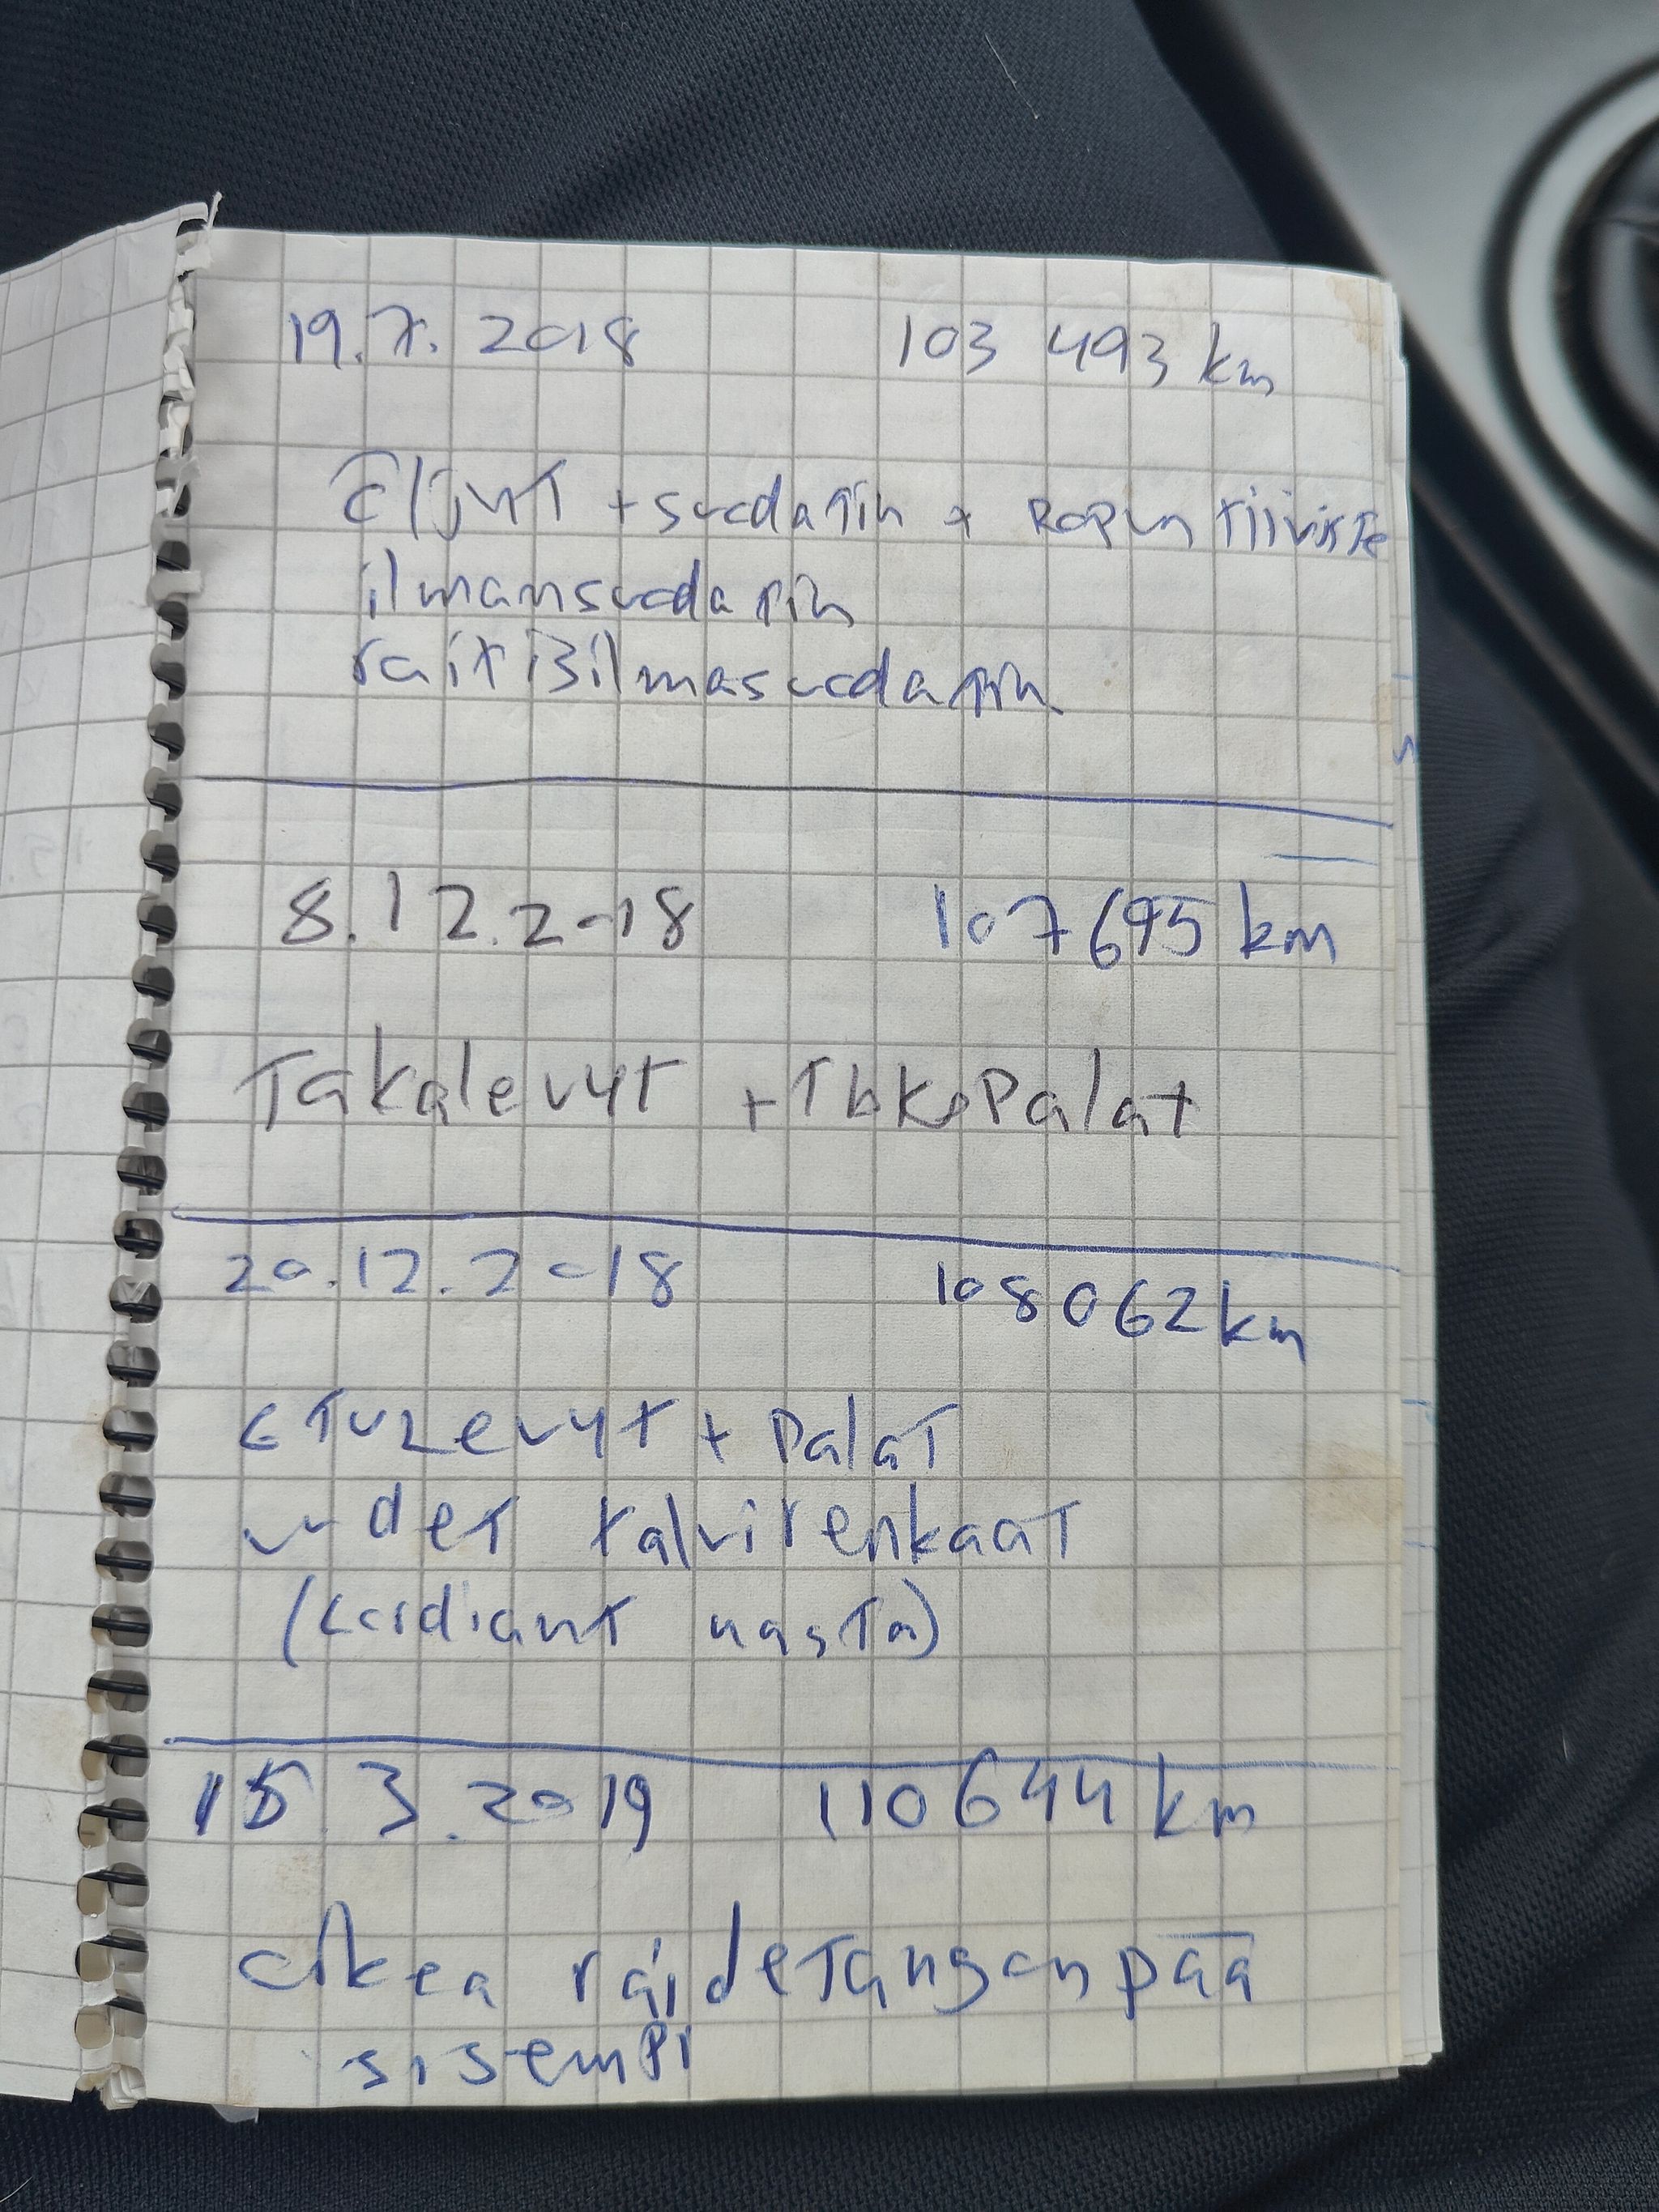 19.7.2018 103 493 km
Öljyt + suodatin + Ropun tiiviste
ilmansuodatin
raitisilmasuodatin
8.12.2018 107695 km
Takalevyt + Palat
20.12.2018 108062 km
ETULevyt + Palat
uudet talvirenkaat
(Cordiant nasta)
15 3.2019 110644 km
oikea raidetangonpää
sisempi